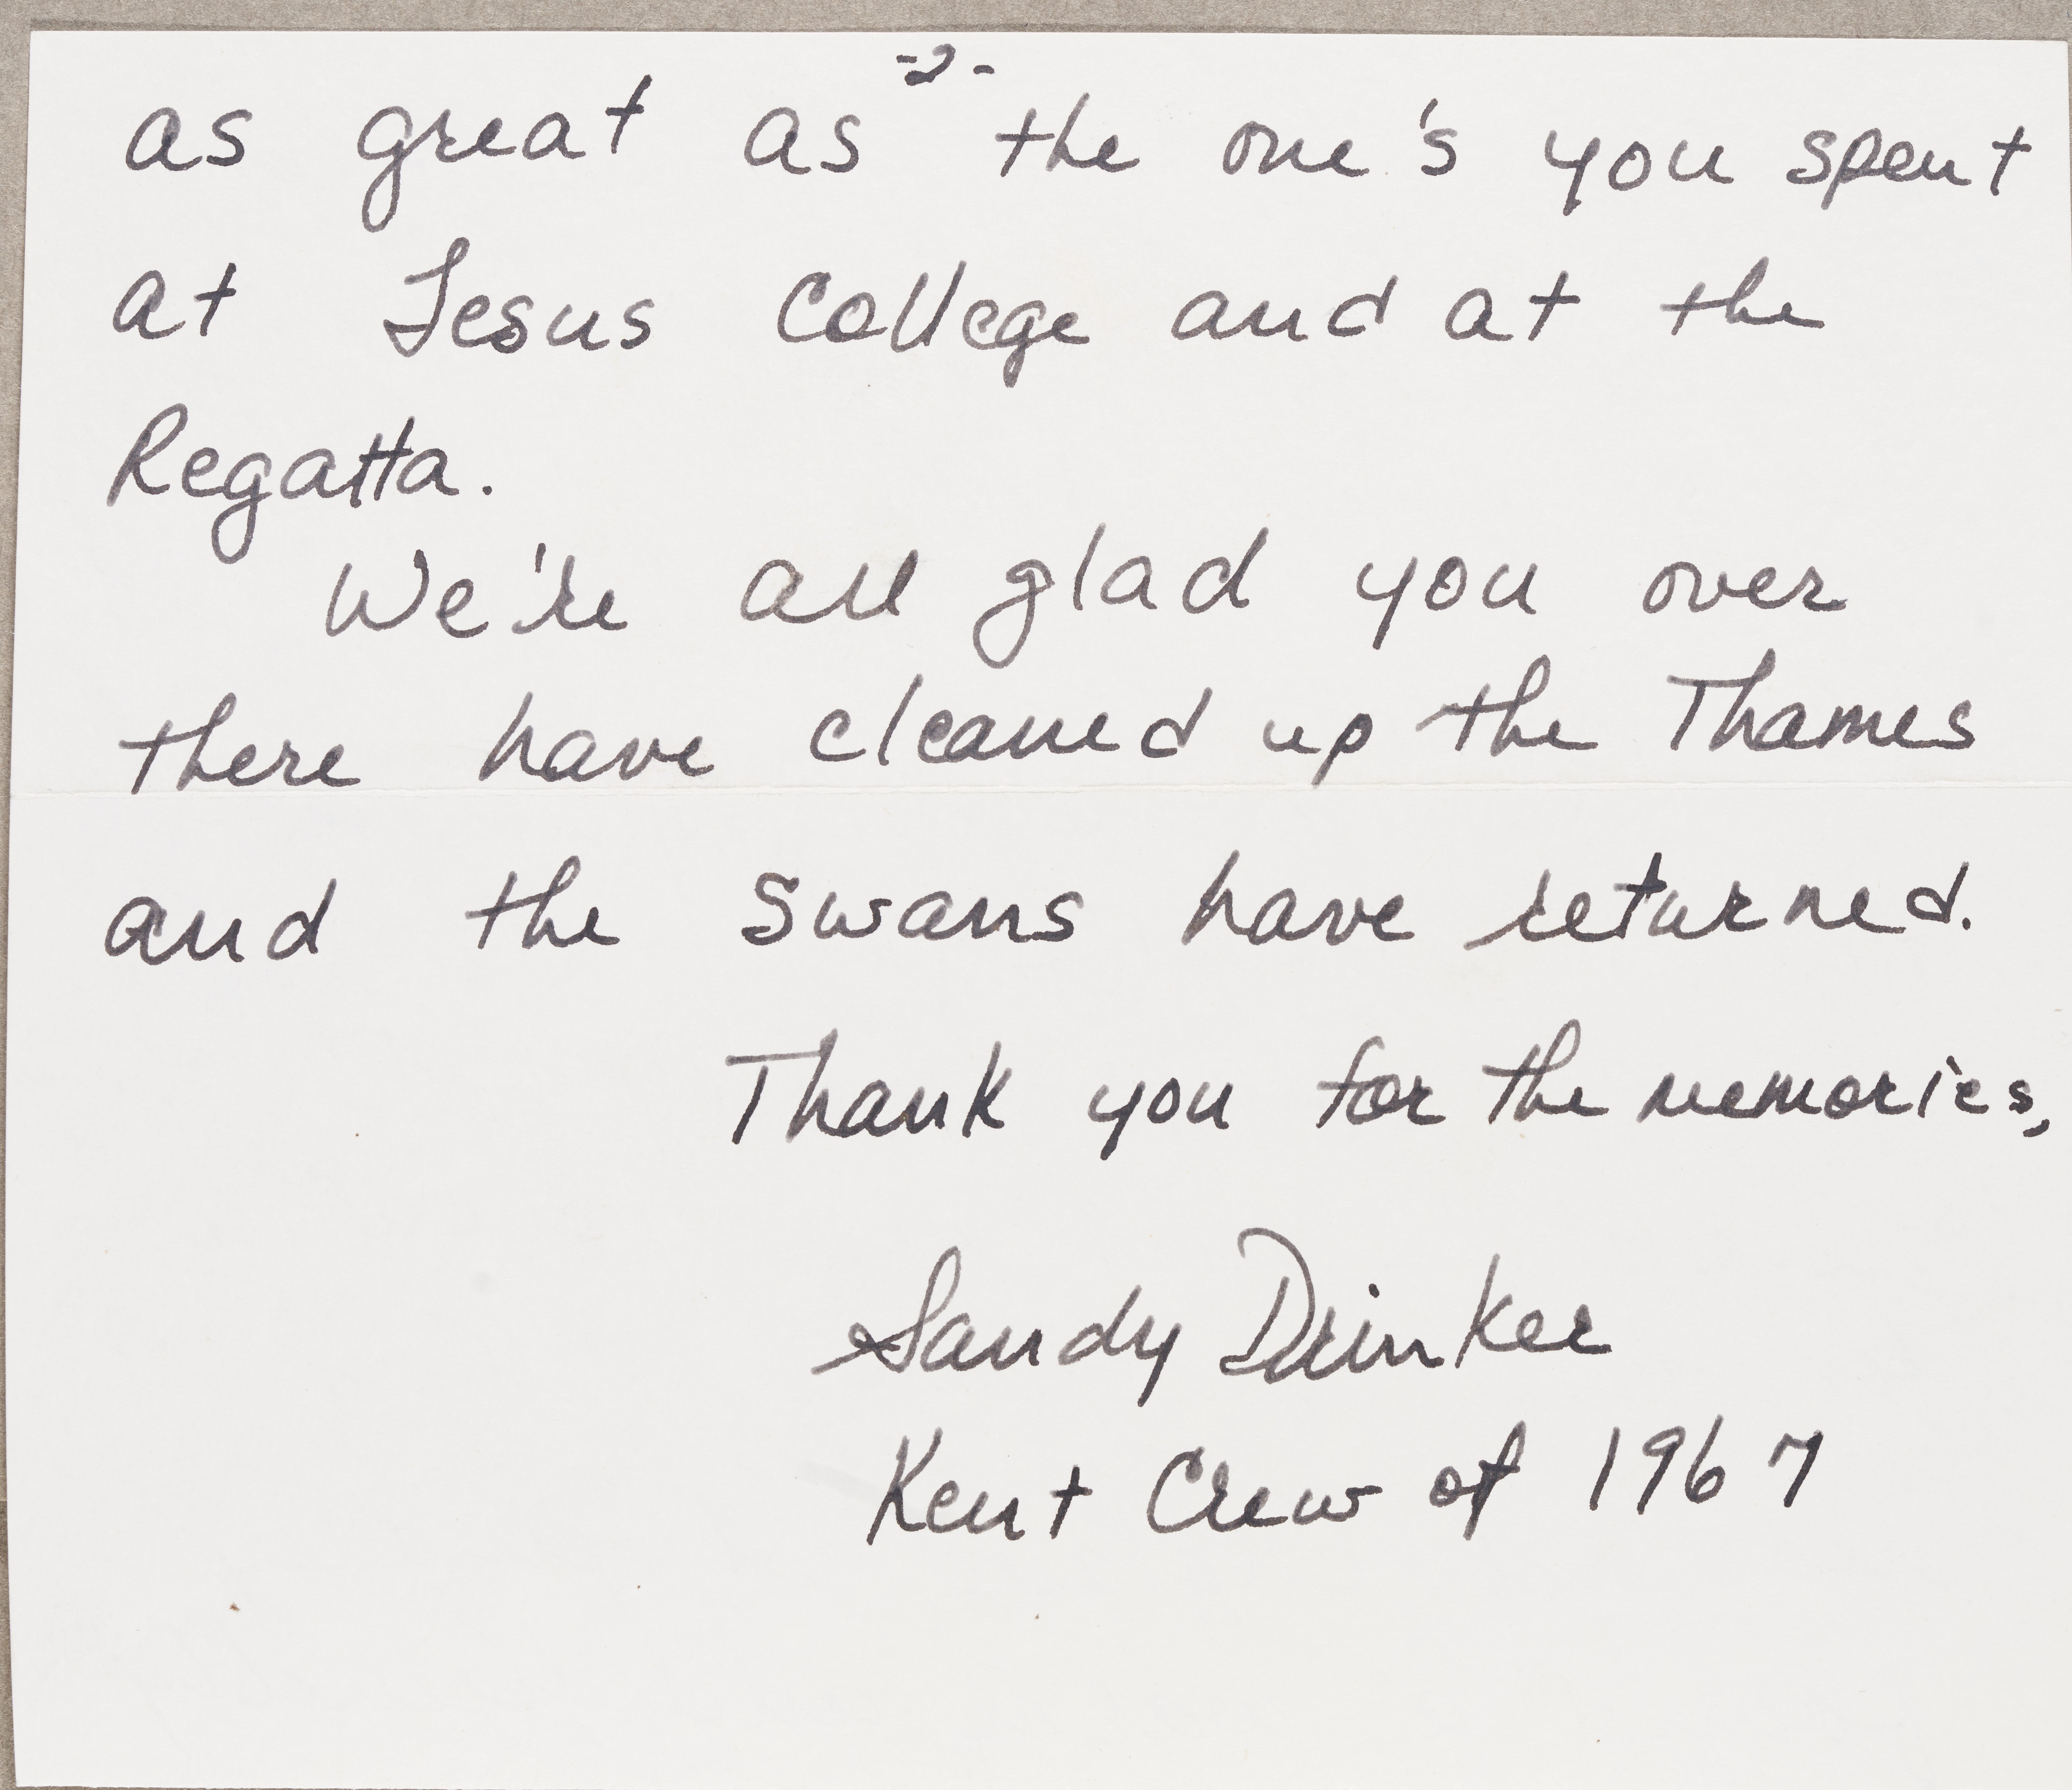 -2-
as great as the one's you spent
at Jesus College and at the
Regatta.
We're all glad you over
there have cleaned up the Thames
and the Swans have returned.
Thank you for the memories,
Sandy Drinker
Kent Crew of 1967